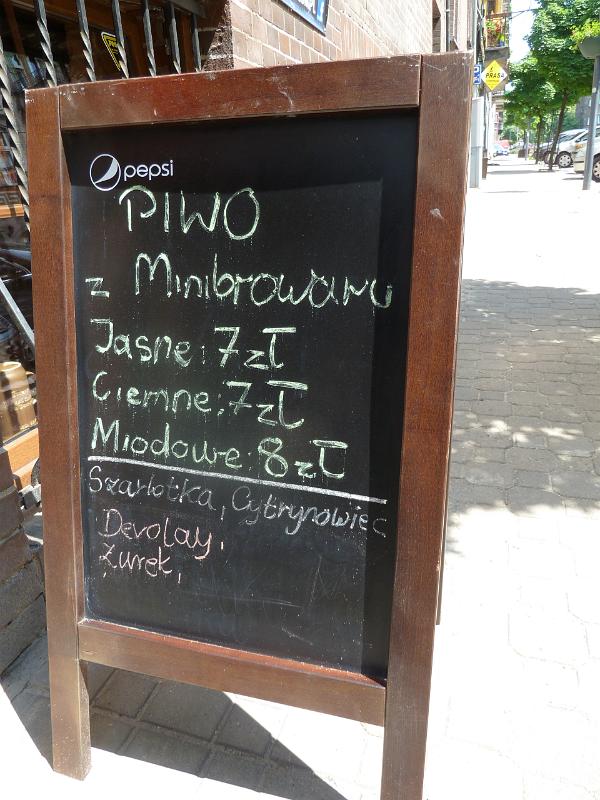 pepsi
PIWO
z Minibrowaru
Jasne: 7zł
Ciemne: 7zł
Miodowe: 8zł
Szarlotka, Cytrynowiec
Devolay,
Żurek,
PRASA